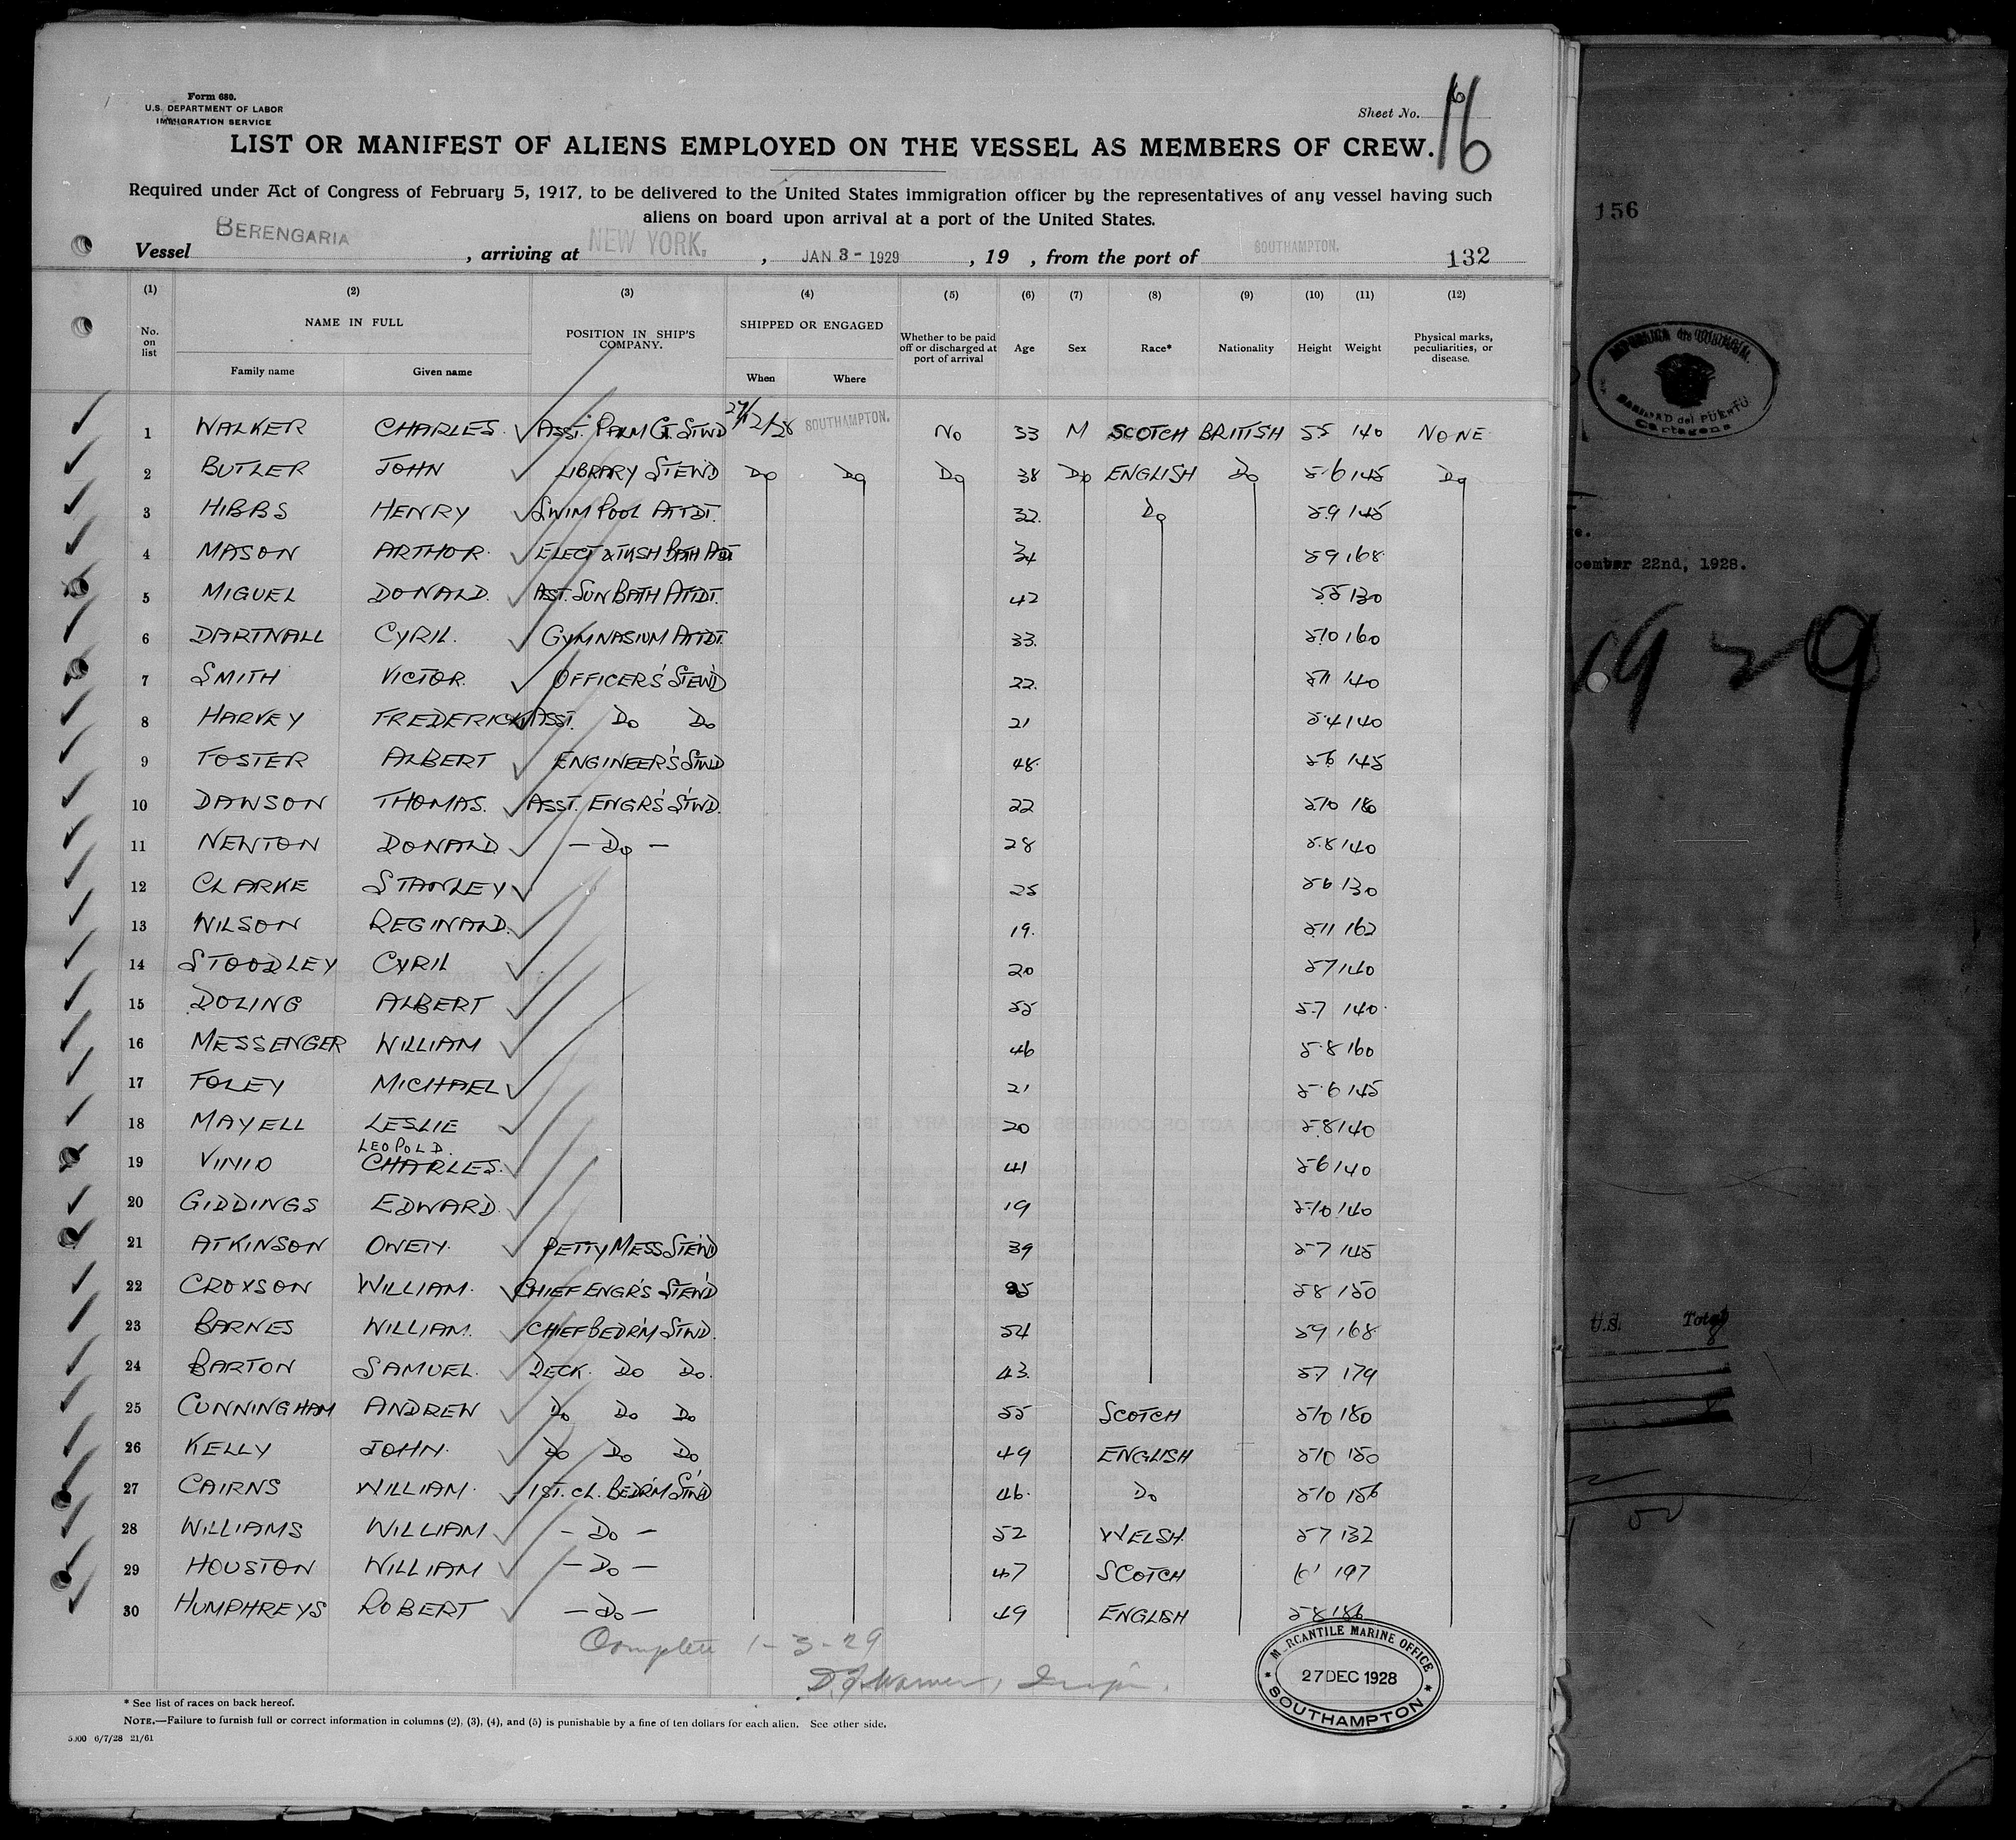 Form 680.
U.S. DEPARTMENT OF LABOR
IMMIGRATION SERVICE
Sheet No. 16
LIST OR MANIFEST OF ALIENS EMPLOYED ON THE VESSEL AS MEMBERS OF CREW.
Required under Act of Congress of February 5, 1917, to be delivered to the United States immigration officer by the representatives of any vessel having such
aliens on board upon arrival at a port of the United States.
Vessel BERENGARIA, arriving at NEW YORK, JAN 3 - 1929, 19 , from the port of SOUTHAMPTON. 132
(1) (2) (3) (4) (5) (6) (7) (8) (9) (10) (11) (12)
No. on list NAME IN FULL Family name Given name POSITION IN SHIP'S COMPANY. SHIPPED OR ENGAGED When Where Whether to be paid off or discharged at port of arrival Age Sex Race* Nationality Height Weight Physical marks, peculiarities, or disease.
1 WALKER CHARLES. ASST. PALM CT. STWD 27/12/28 SOUTHAMPTON. No 33 M SCOTCH BRITISH 5.5 140 NONE
2 BUTLER JOHN LIBRARY STEWD Do Do Do 38 Do ENGLISH Do 5.6 145 Do
3 HIBBS HENRY SWIM POOL ATTDT. 32. Do 5.9 145
4 MASON ARTHOR. ELECT & TKSH BATH ATT 34 5.9 168
5 MIGUEL DONALD. ASST. SUN BATH ATTDT. 42 5.5 130
6 DARTNALL CYRIL. GYMNASIUM ATTDT. 33. 5.10 160
7 SMITH VICTOR. OFFICER'S STEWD 22. 5.11 140
8 HARVEY FREDERICK ASST. Do Do 21 5.4 140
9 FOSTER ALBERT ENGINEER'S STWD 48. 5.6 145
10 DAWSON THOMAS. ASST. ENGR'S STWD. 22 5.10 180
11 NEWTON DONALD — Do — 28 5.8 140
12 CLARKE STANLEY 25 5.6 130
13 WILSON REGINALD. 19. 5.11 162
14 STOODLEY CYRIL 20 5.7 140
15 DOLING ALBERT 55 5.7 140
16 MESSENGER WILLIAM 46 5.8 160
17 FOLEY MICHAEL 21 5.6 145
18 MAYELL LESLIE 20 5.8 140
LEOPOLD.
19 VINIO CHARLES. 41 5.6 140
20 GIDDINGS EDWARD. 19 5.10 140
21 ATKINSON OWEN. PETTY MESS STEWD 39 5.7 145
22 CROXSON WILLIAM. CHIEF ENGR'S STEWD 5.8 150
23 BARNES WILLIAM. CHIEF BEDRM STWD. 54 5.9 168
24 BARTON SAMUEL. DECK. Do Do. 43. 5.7 179
25 CUNNINGHAM ANDREW Do Do Do 55 SCOTCH 5.10 180
26 KELLY JOHN. Do Do Do 49 ENGLISH 5.10 150
27 CAIRNS WILLIAM. 1ST. CL. BEDRM STWD 46. Do 5.10 156
28 WILLIAMS WILLIAM — Do — 52 WELSH. 5.7 132
29 HOUSTON WILLIAM — Do — 47 SCOTCH 6' 197
30 HUMPHREYS ROBERT — Do — 49 ENGLISH 5.8 186
Complete 1-3-29
MERCANTILE MARINE OFFICE
27 DEC 1928
SOUTHAMPTON
* See list of races on back hereof.
NOTE.—Failure to furnish full or correct information in columns (2), (3), (4), and (5) is punishable by a fine of ten dollars for each alien. See other side.
5000 6/7/28 21/61
156
SANIDAD del PUERTO
Cartagena
cember 22nd, 1928.
1929
U.S. Total